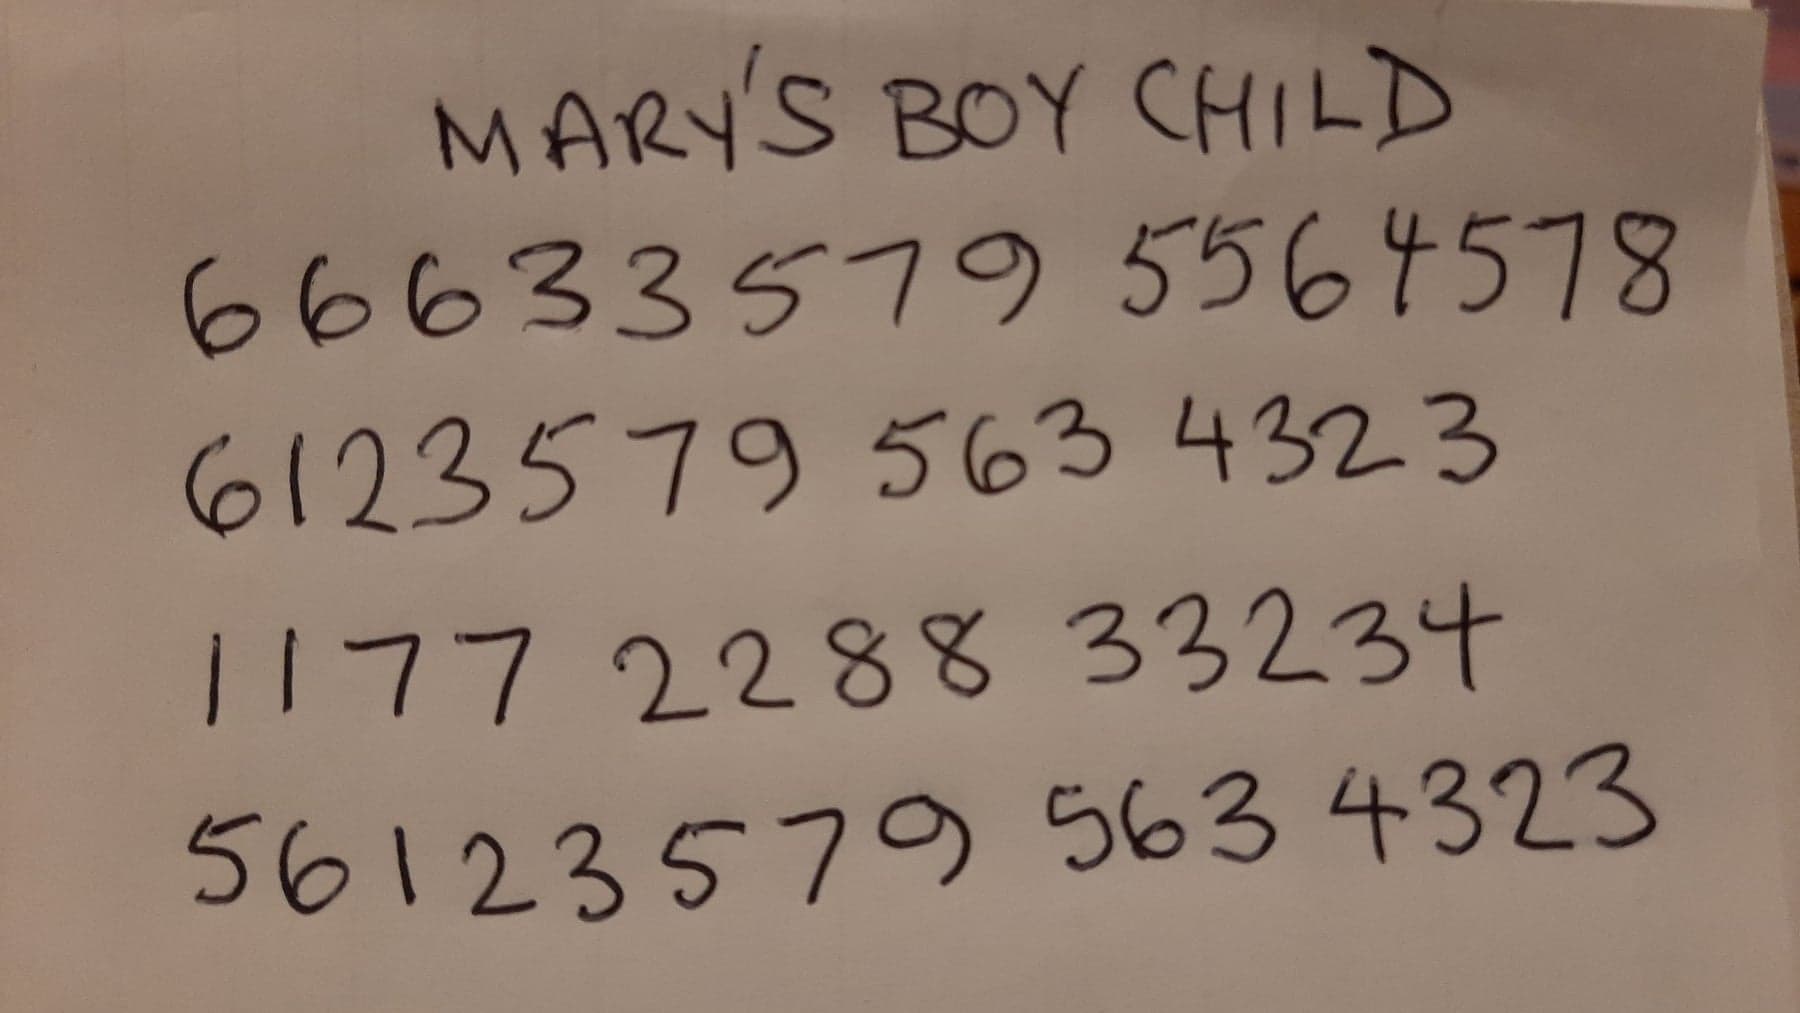 MARY'S BOY CHILD
66633579 5564578
6123579 563 4323
1177 2288 33234
56123579 563 4323